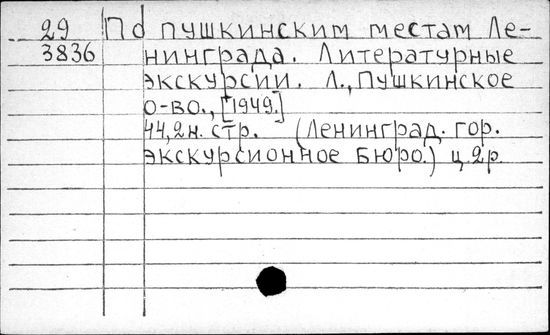 29 Пo пушкинским местам Ле-
3836 нинграда. Литературные
экскурсии. Л., Пушкинское
о-во., [1949.]
44,2н. стр. (Ленинград. гор.
экскурсионное бюро.) ц. 2р.